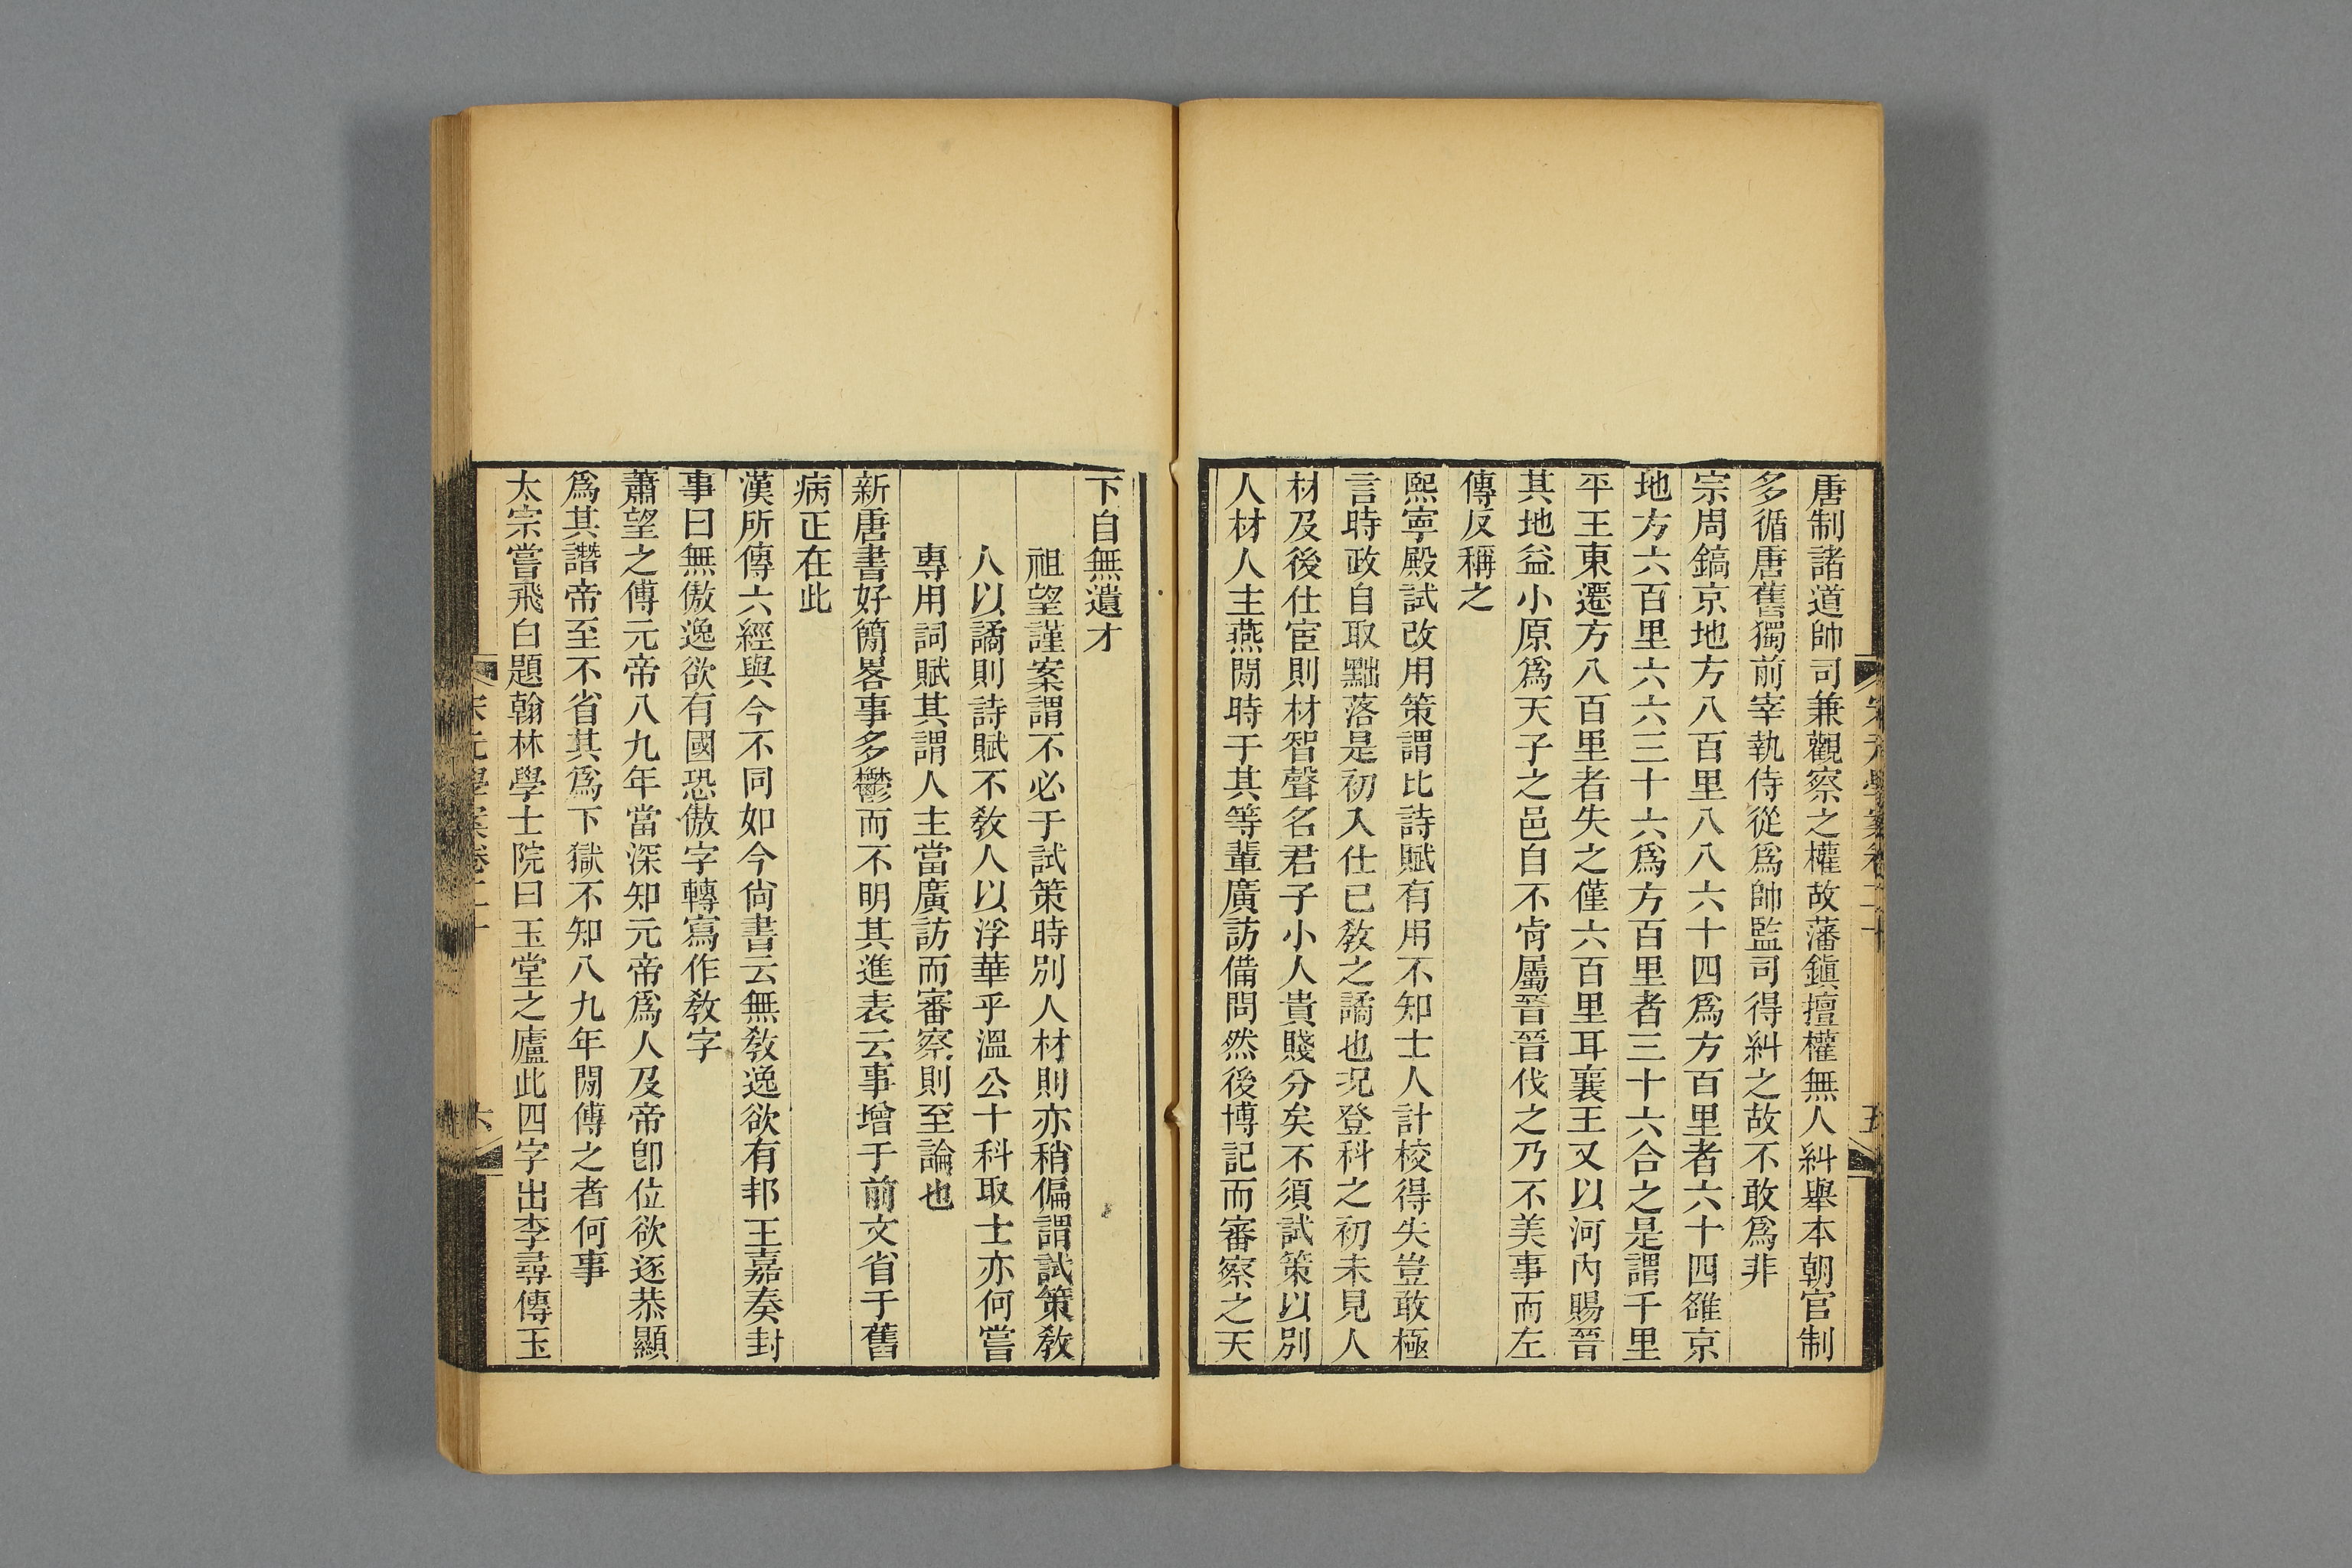 唐制諸道帥司兼觀察之權故藩鎭擅權無人糾舉本朝官制
多循唐舊獨前宰執侍從爲帥監司得糾之故不敢爲非
宗周鎬京地方八百里八八六十四爲方百里者六十四雒京
地方六百里六六三十六爲方百里者三十六合之是謂千里
平王東遷方八百里者失之僅六百里耳襄王又以河內賜晉
其地益小原爲天子之邑自不肯屬晉晉伐之乃不美事而左
傳反稱之
熙寧殿試改用策謂比詩賦有用不知士人計校得失豈敢極
言時政自取黜落是初入仕已敎之譎也況登科之初未見人
材及後仕宦則材智聲名君子小人貴賤分矣不須試策以別
人材人主燕閒時于其等輩廣訪備問然後博記而審察之天
下自無遺才
祖望謹案謂不必于試策時別人材則亦稍偏謂試策敎
人以譎則詩賦不敎人以浮華乎溫公十科取士亦何嘗
專用詞賦其謂人主當廣訪而審察則至論也
新唐書好簡畧事多鬱而不明其進表云事增于前文省于舊
病正在此
漢所傳六經與今不同如今尙書云無敎逸欲有邦王嘉奏封
事曰無傲逸欲有國恐傲字轉寫作敎字
蕭望之傳元帝八九年當深知元帝爲人及帝卽位欲逐恭顯
爲其譖帝至不省其爲下獄不知八九年閒傳之者何事
太宗嘗飛白題翰林學士院曰玉堂之廬此四字出李尋傳玉
宋元學案卷二十
六